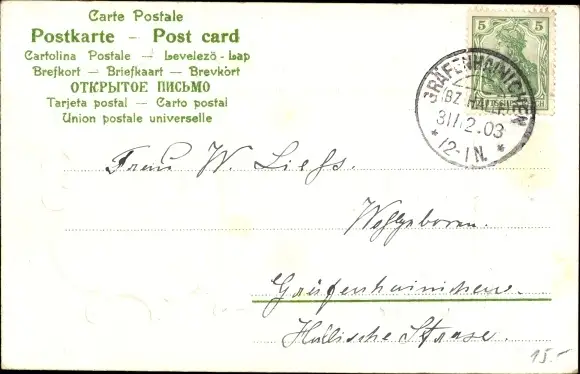 Carte Postale
Postkarte — Post card
Cartolina Postale — Levelezö-Lap
Brefkort — Briefkaart — Brevkort
ОТКРЫТОЕ ПИСЬМО
Tarjeta postal — Carto postal
Union postale universelle
5 5
GRÄFENHAINICHEN
(BZ. HALLE)
31/12.03
* 12-1 N. *
Frau W.
Wohlgeboren.
Gräfenhainichen.
Hallische Strasse.
15.-